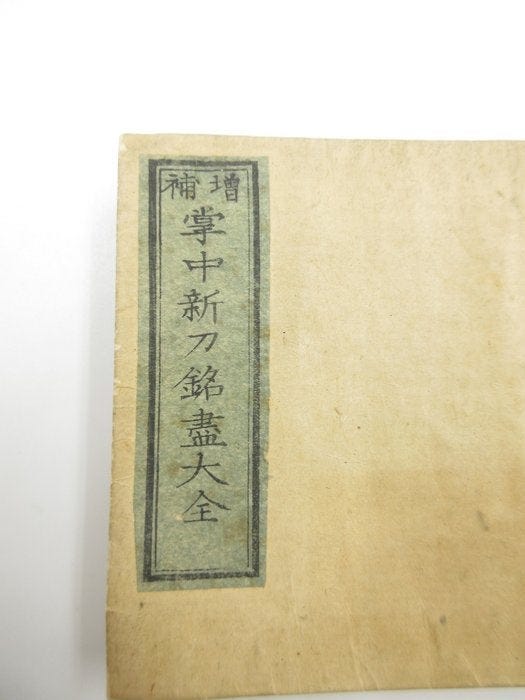 增補
掌中新刀銘盡大全